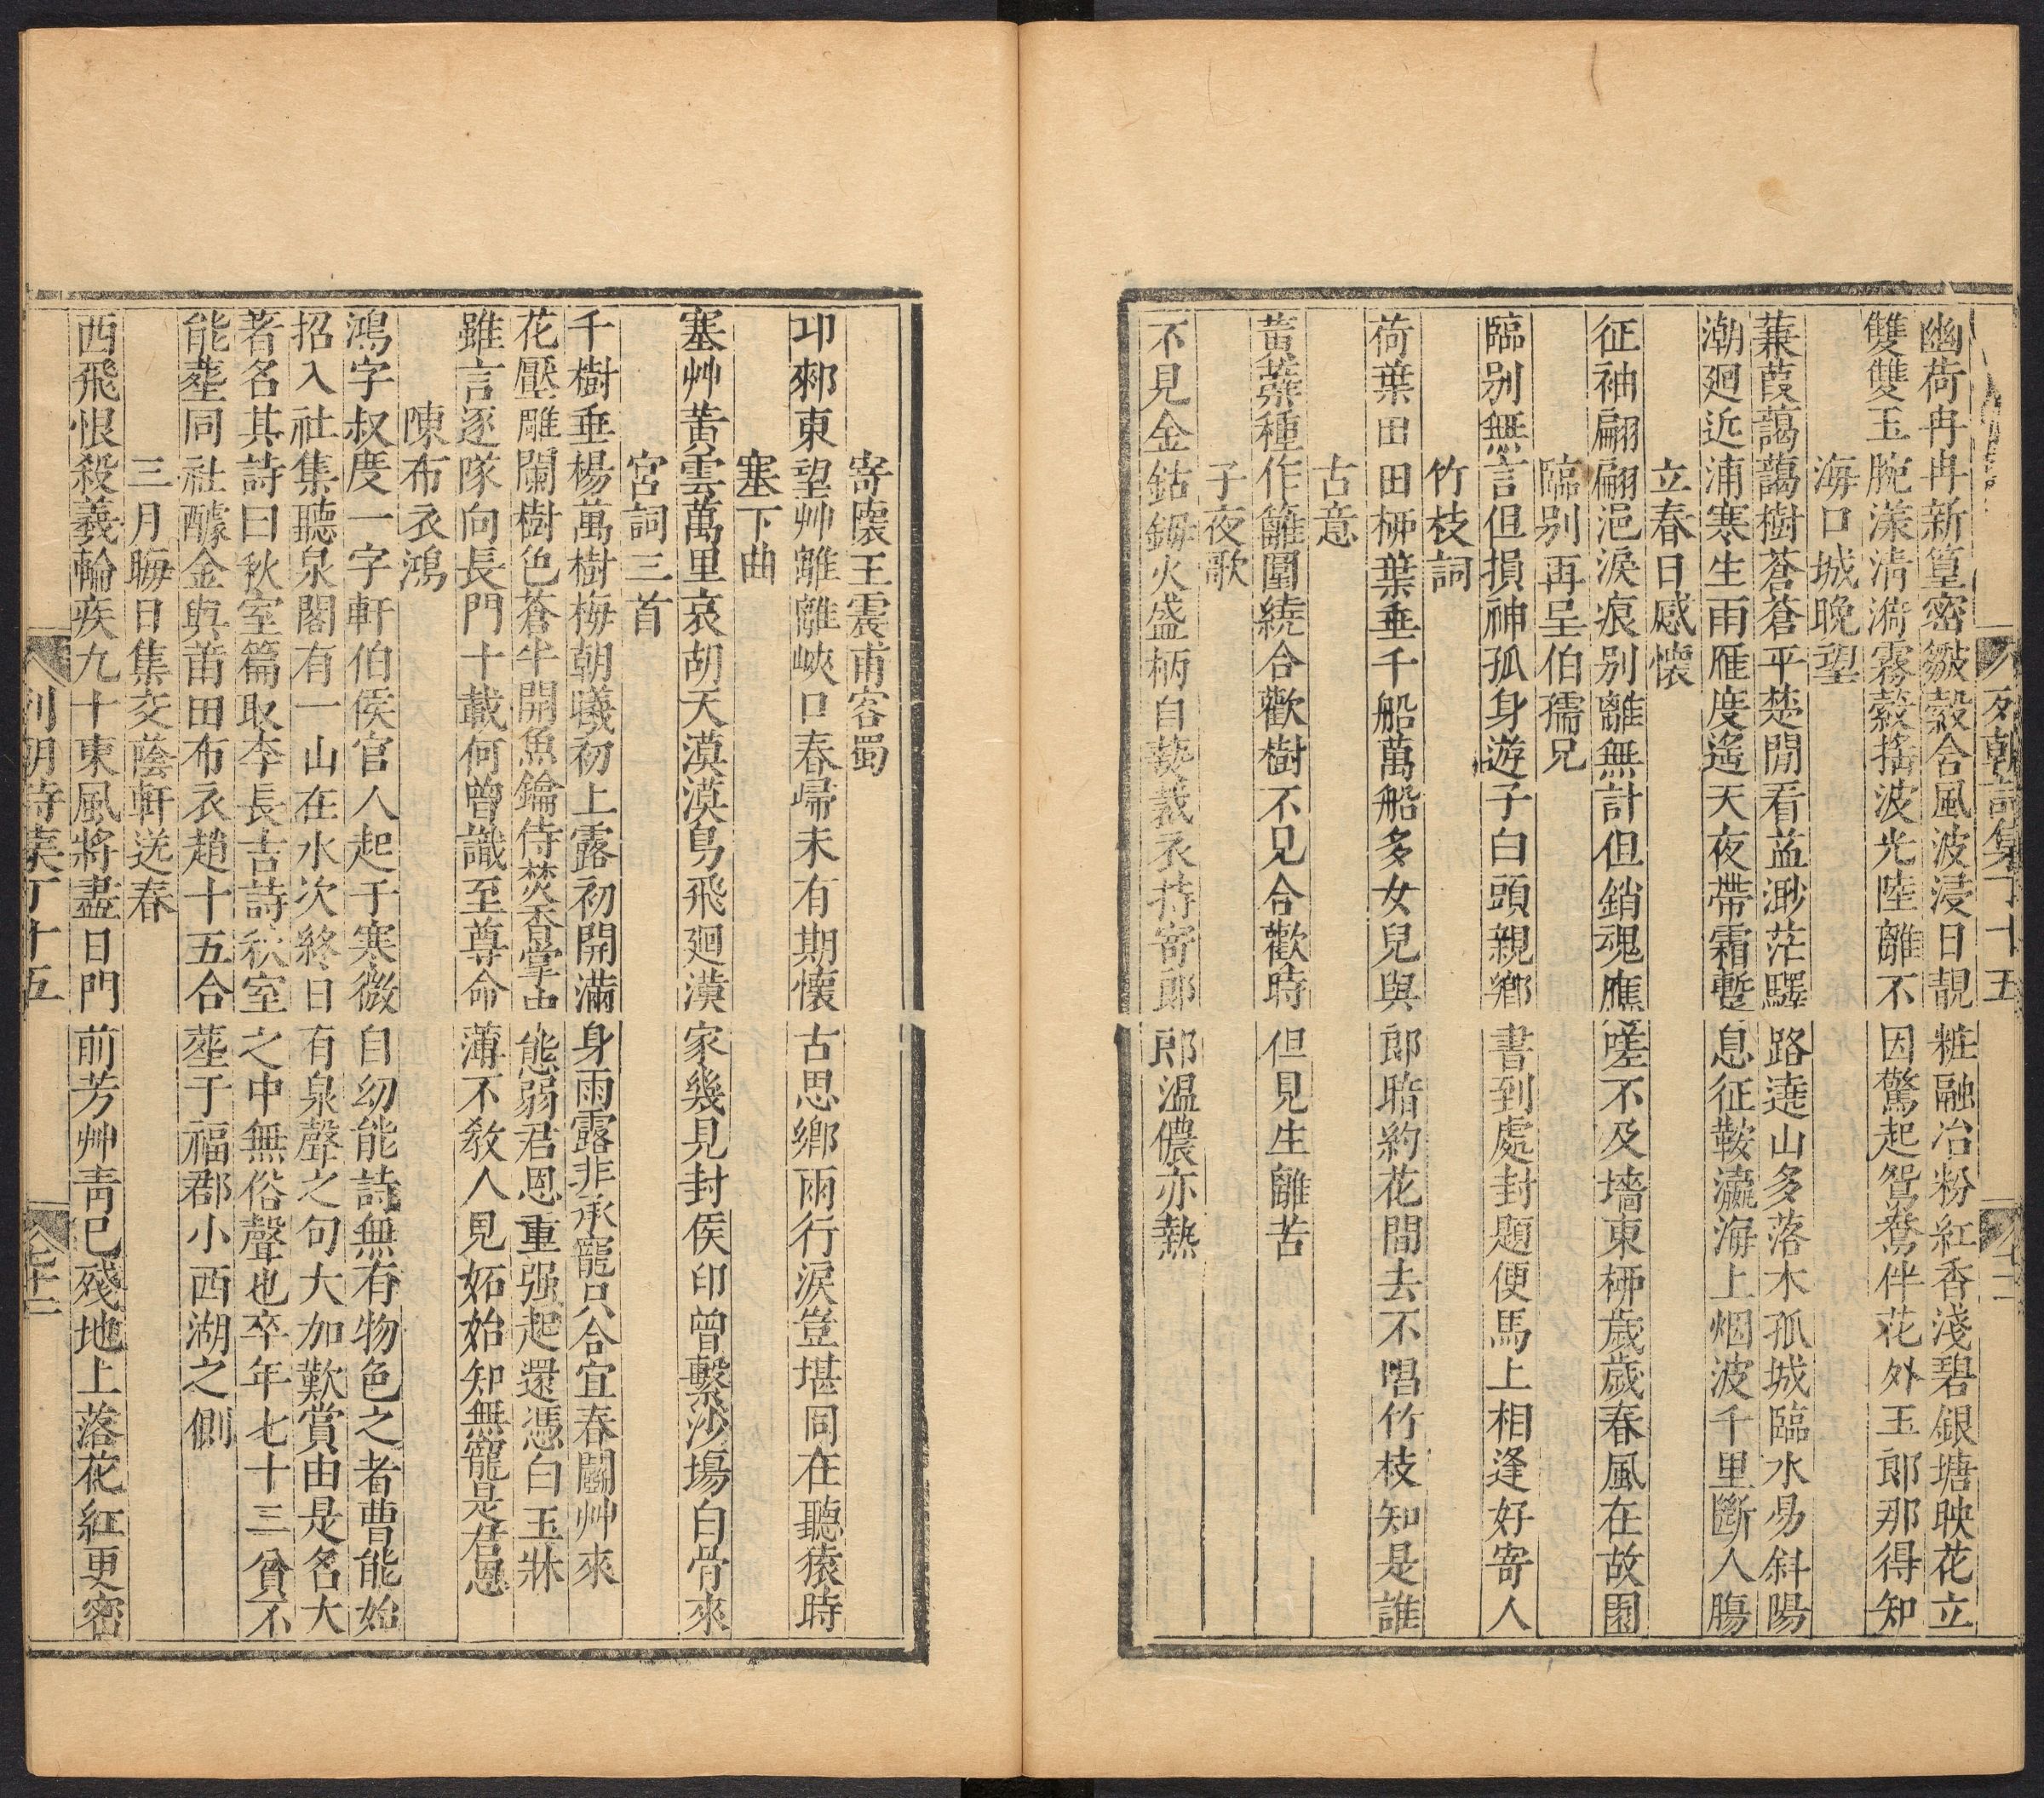 列朝詩集丁十五
幽荷冉冉新篁密皺縠合風波浸日靚粧融冶粉紅香淺碧銀塘映花立
雙雙玉腕漾清漪霧縠搖波光陸離不因驚起鴛鴦伴花外玉郎那得知
海口城晚望
蒹葭藹藹樹蒼蒼平楚閒看益渺茫驛路遶山多落木孤城臨水易斜陽
潮廻近浦寒生雨雁度遙天夜帶霜蹔息征鞍瀛海上烟波千里斷人腸
立春日感懷
征袖翩翩浥淚痕别離無計但銷魂應嗟不及墻東栁歲歲春風在故園
臨别再呈伯孺兄
臨别無言但損神孤身遊子白頭親鄉書到處封題便馬上相逢好寄人
竹枝詞
荷葉田田栁葉垂千船萬船多女兒與郎暗約花間去不唱竹枝知是誰
古意
黃蘗種作籬圍繞合歡樹不見合歡時但見生離苦
子夜歌
不見金鈷鉧火盛柄自熱裁衣持寄郎郎温儂亦熱
寄懷王震甫客蜀
卭郲東望艸離離峽口春歸未有期懷古思鄉兩行淚豈堪同在聽猿時
塞下曲
塞艸黃雲萬里哀胡天漠漠鳥飛廻漢家幾見封侯印曾繫沙塲白骨來
宮詞三首
千樹垂楊萬樹梅朝曦初上露初開滿身雨露非承寵只合宜春鬬艸來
花壓雕闌樹色蒼半開魚鑰侍焚香掌中態弱君恩重强起還憑白玉牀
雖言逐隊向長門十載何曾識至尊命薄不敎人見妬始知無寵是君恩
陳布衣鴻
鴻字叔度一字軒伯侯官人起于寒微自幼能詩無有物色之者曹能始
招入社集聽泉閣有一山在水次終日有泉聲之句大加歎賞由是名大
著名其詩曰秋室篇取李長吉詩秋室之中無俗聲也卒年七十三貧不
能塟同社醵金與莆田布衣趙十五合塟于福郡小西湖之側
三月晦日集交蔭軒送春
西飛恨殺羲輪疾九十東風將盡日門前芳艸靑已殘地上落花紅更密
列朝詩集丁十五